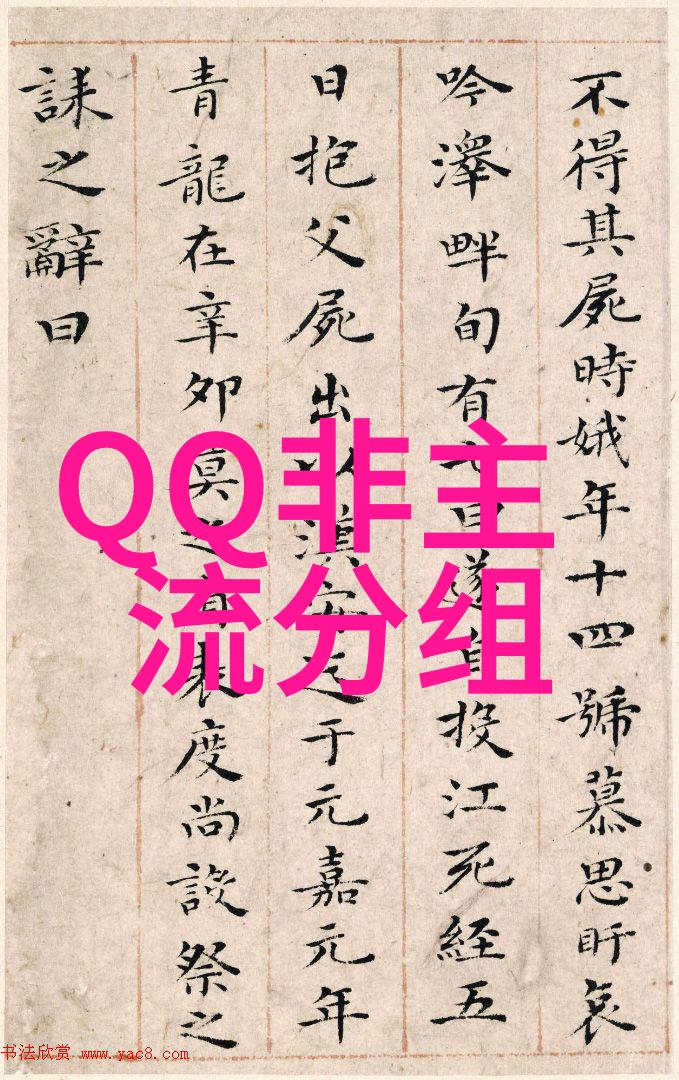 不得其屍時娥年十四號慕思盱哀
吟澤畔旬有七日遂自投江死經五
日抱父屍出以漢安迄于元嘉元年
青龍在辛卯莫之有表度尚設祭之
誄之辭曰
QQ非主
流分组
书法欣赏 www.yac8.com